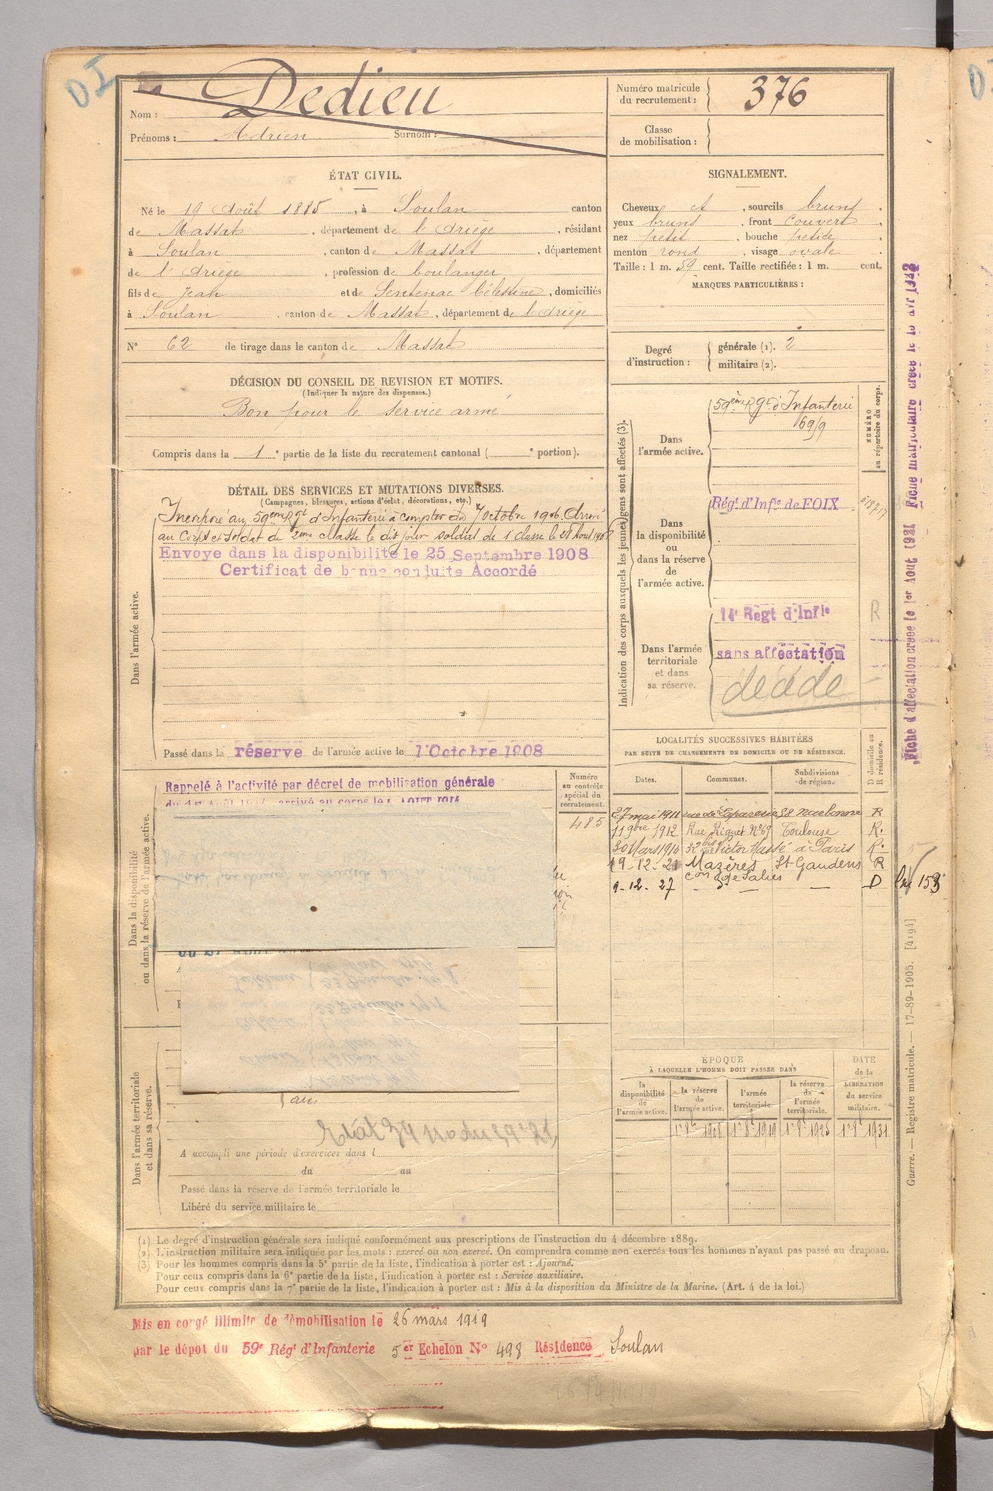 DI
Nom : Dedieu
Prénoms : Adrien Surnom :
Numéro matricule du recrutement : 376
Classe de mobilisation :
ÉTAT CIVIL.
Né le 19 Août 1885, à Soulan canton
de Massat, département de l'Ariège, résidant
à Soulan, canton de Massat, département
de l'Ariège, profession de boulanger
fils de Jean et de Sentenac Célestine, domiciliés
à Soulan, canton de Massat, département de l'Ariège
N° 62 de tirage dans le canton de Massat
SIGNALEMENT.
Cheveux et, sourcils bruns,
yeux bruns, front couvert,
nez petit, bouche petite,
menton rond, visage ovale.
Taille : 1 m. 59 cent. Taille rectifiée : 1 m. cent.
MARQUES PARTICULIÈRES :
Degré d'instruction : générale (1). 2
militaire (2).
DÉCISION DU CONSEIL DE REVISION ET MOTIFS.
(Indiquer la nature des dispenses.)
Bon pour le service armé
Compris dans la 1e partie de la liste du recrutement cantonal ( e portion).
DÉTAIL DES SERVICES ET MUTATIONS DIVERSES.
(Campagnes, blessures, actions d'éclat, décorations, etc.)
Dans l'armée active.
Incorporé au 59ème Rgt d'Infanterie à compter du 7 octobre 1906. Arrivé
au Corps et soldat de 2ème classe le dit jour soldat de 1 classe le 28 Août 1908
Envoyé dans la disponibilité le 25 Septembre 1908
Certificat de bonne conduite Accordé
Passé dans la réserve de l'armée active le 1 Octobre 1908
Indication des corps auxquels les jeunes gens sont affectés (3).
NUMÉRO au répertoire du corps.
Dans l'armée active.
59ème Rgt d'Infanterie
Dans la disponibilité ou dans la réserve de l'armée active.
Régt d'Infie de FOIX
Dans l'armée territoriale et dans sa réserve.
14e Regt d'Infie
sans affectation
décédé
R
Fiche d'affectation créée le 1er Aout 1921 Fiche matriculaire créée le
Dans la disponibilité ou dans la réserve de l'armée active.
Rappelé à l'activité par décret de mobilisation générale
Numéro au contrôle spécial du recrutement.
485
LOCALITÉS SUCCESSIVES HABITÉES
PAR SUITE DE CHANGEMENTS DE DOMICILE OU DE RÉSIDENCE.
Dates. Communes. Subdivisions de région. D domicile ou R résidence.
27 mai 1911 Narbonne R
11 9bre 1912 Rue Riquet N° 69 Toulouse R.
30 Mars 1914 Victor Massé à Paris R.
19-12-21 Mazères con de Salies St Gaudens R
9-12-27 — d° — — D
Dans l'armée territoriale et dans sa réserve.
ans
A accompli une période d'exercices dans l
du au
Passé dans la réserve de l'armée territoriale le
Libéré du service militaire le
ÉPOQUE
À LAQUELLE L'HOMME DOIT PASSER DANS
DATE de la LIBÉRATION du service militaire.
la disponibilité de l'armée active. la réserve de l'armée active. l'armée territoriale. la réserve de l'armée territoriale.
1er 8bre 1908 1er 8bre 1919 1er 8bre 1925 1er 8bre 1931
Guerre. — Registre matricule. — 17-89-1905. [4194]
(1) Le degré d'instruction générale sera indiqué conformément aux prescriptions de l'instruction du 4 décembre 1889.
(2) L'instruction militaire sera indiquée par les mots : exercé ou non exercé. On comprendra comme non exercés tous les hommes n'ayant pas passé au drapeau.
(3) Pour les hommes compris dans la 5e partie de la liste, l'indication à porter est : Ajourné.
Pour ceux compris dans la 6e partie de la liste, l'indication à porter est : Service auxiliaire.
Pour ceux compris dans la 7e partie de la liste, l'indication à porter est : Mis à la disposition du Ministre de la Marine. (Art. 4 de la loi.)
Mis en congé illimité de démobilisation le 26 mars 1919
par le dépot du 59e Régt d'Infanterie 5er Echelon N° 498 Résidence Soulan